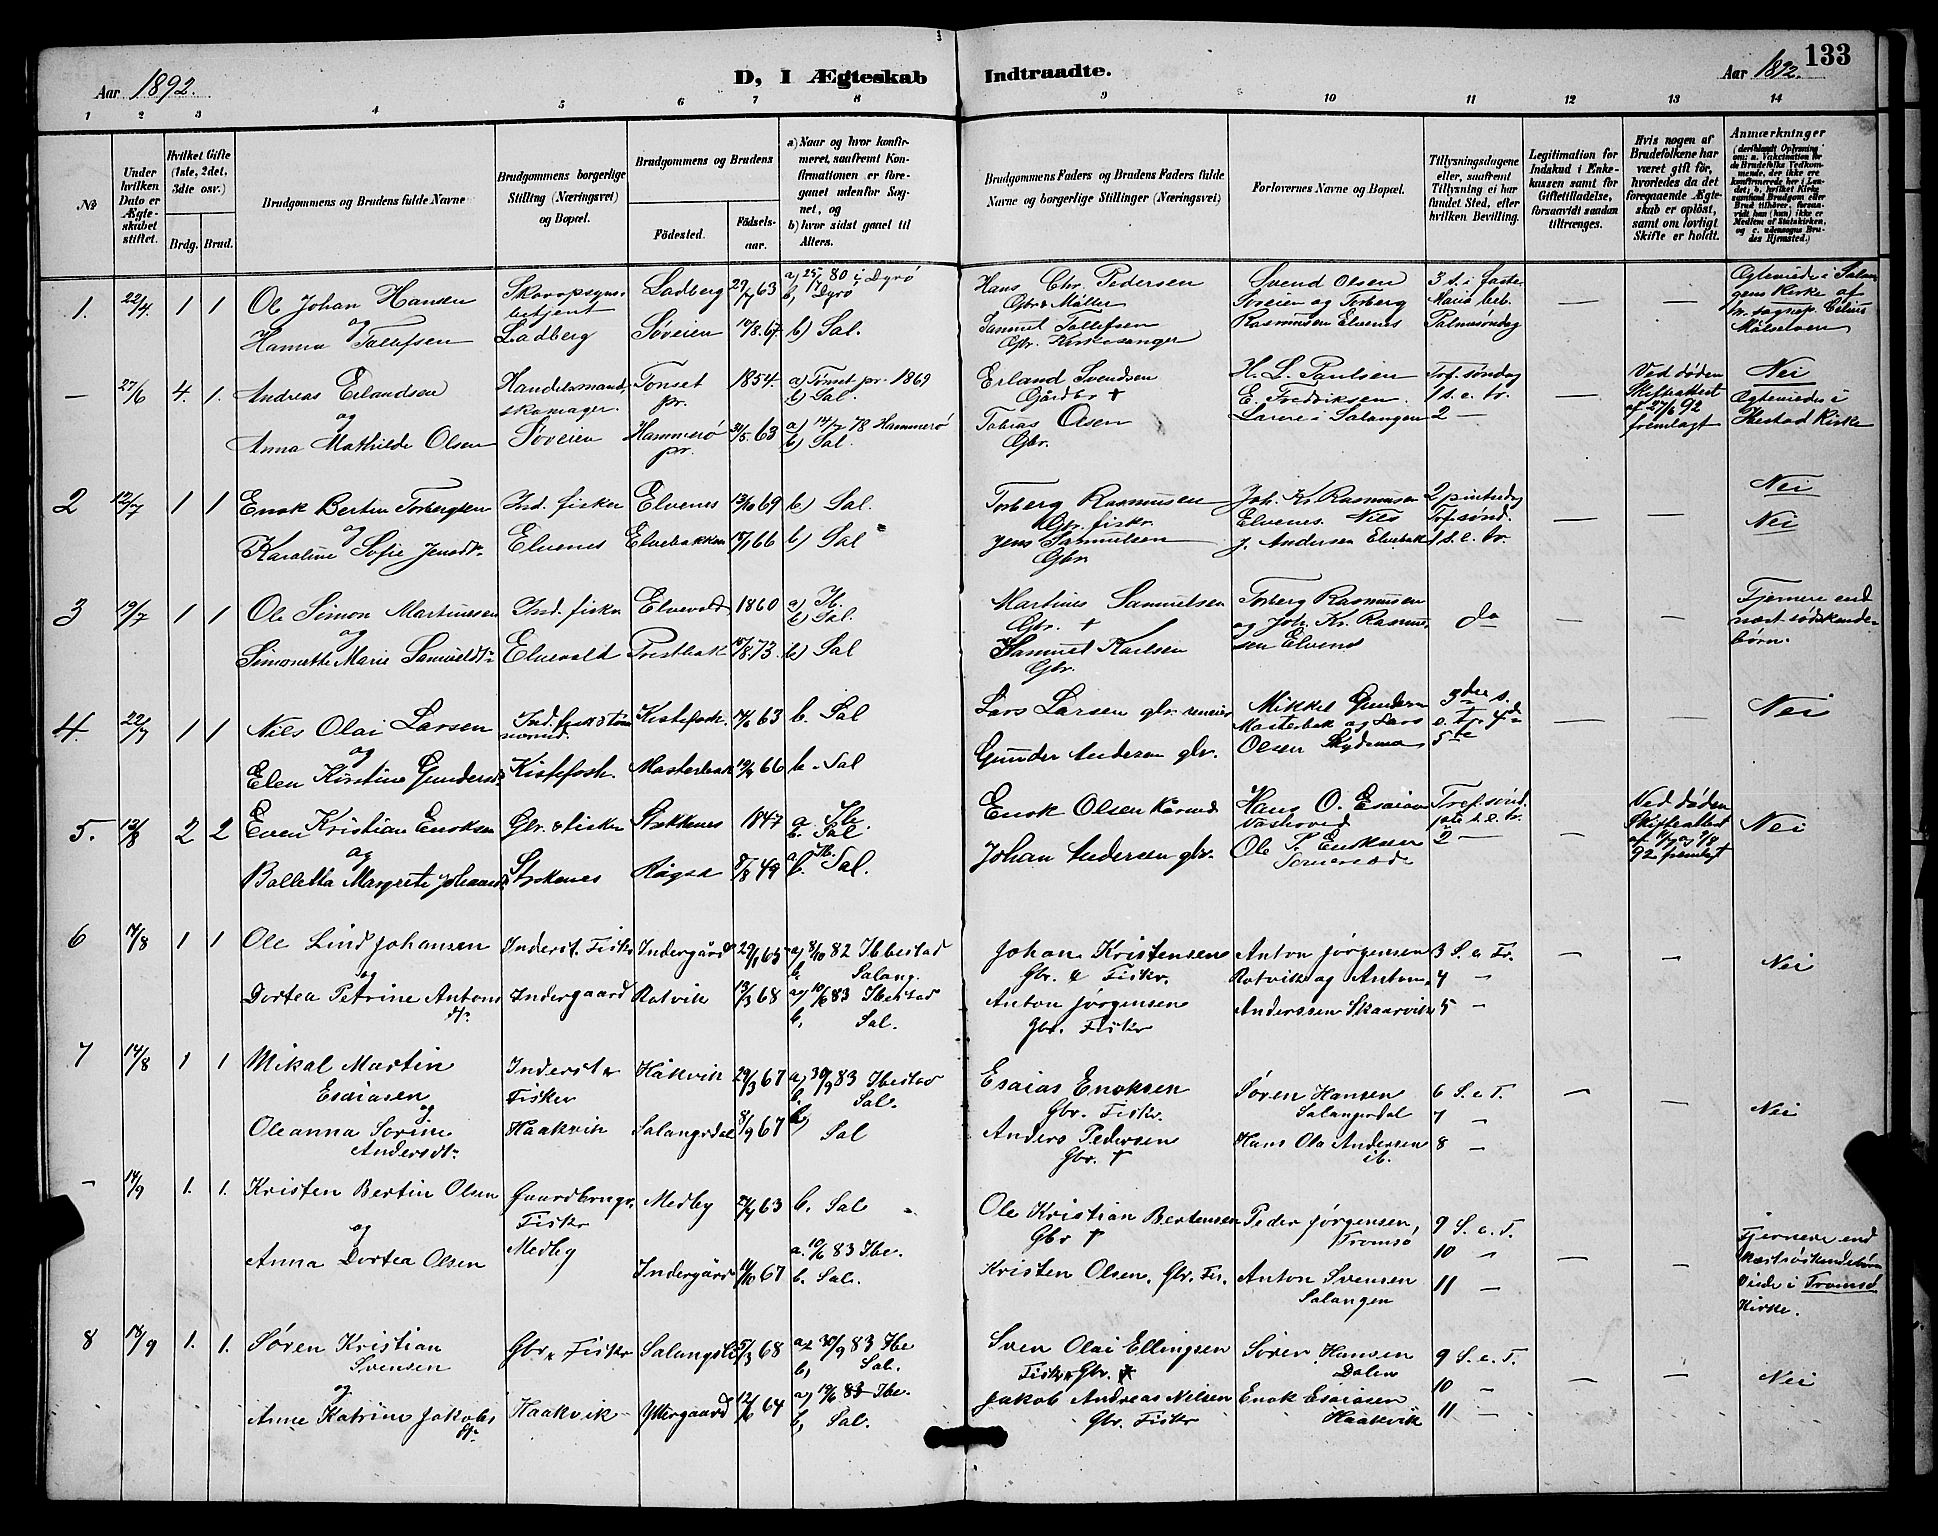 Aar 1892.
D, I Ægteskab Indtraadte.
Aar 1892.
133
1 2 3 4 5 6 7 8 9 10 11 12 13 14
No
Under hvilken Dato er Ægteskabet stiftet.
Hvilket Gifte (1ste, 2det, 3die osv.)
Brdg. Brud.
Brudgommens og Brudens fulde Navne
Brudgommens borgerlige Stilling (Næringsvei) og Bopæl.
Brudgommens og Brudens
Fødested. Fødselsaar.
a) Naar og hvor konfirmeret, saafremt Konfirmationen er foregaaet udenfor Sognet, og
b) hvor sidst gaaet til Alters.
Brudgommens Faders og Brudens Faders fulde Navne og borgerlige Stillinger (Næringsvei)
Forlovernes Navne og Bopæl.
Tillysningsdagene eller, saafremt Tillysning ei har fundet Sted, efter hvilken Bevilling.
Legitimation for Indskud i Enkekassen samt for Giftetilladelse, forsaavidt saadan tiltrænges.
Hvis nogen af Brudefolkene har været gift før, hvorledes da det foregaaende Ægteskab er opløst, samt om lovligt Skifte er holdt.
Anmærkninger
1. 22/4 1 1 Ole Johan Hansen
og
Hanna Tollefsen
Skovopsynsbetjent
Ladberg
Ladberg 29/7 63
Søveien 10/8 67
a) 25/7 80 i Dyrø
b) Dyrø
b) Sal.
Hans Chr. Pedersen
Gbr. & Møller
Samuel Tollefsen
Gbr. Kirkesanger
Svend Olsen
Søveien og Torberg
Rasmussen Elvenes
3 s. i faste
Maria beb.
Palmesøndag
— —
Ægteviede i Salangens Kirke af
hr. sognepr.
Målselven
— 27/6 4. 1. Andreas Erlandsen
og
Anna Mathilde Olsen
Handelsmand,
skomager.
Søveien
Tønset pr. 1854
Hammerø pr. 31/5 63
a) Tønset pr. 1869
b) Sal.
a) 14/7 78 Hammerø
b) Sal.
Erland Svendsen
Gårdbr †
Tobias Olsen
Gbr.
H. L. Paulsen
E. Fredriksen.
Lavre i Salangen
Tref. søndag
1 s. e. tr.
2 —
—
Ved døden
Skifteattest
af 27/6 92
fremlagt
Nei
Ægteviede i
Ibestad Kirke
2 12/7 1 1 Enok Bertin Torbergsen
og
Karoline Sofie Jensdtr
Ind. fisker
Elvenes
Elvenes 13/10 69
Elvebakken 18/1 66
b) Sal.
b) Sal
Torberg Rasmussen
Gbr. fiskr.
Jens Samuelsen
Gbr.
Joh. Kr. Rasmusen
Elvenes. Nils
J. Andersen Elvebak
2 pintsedag
Tref. sønd.
1 s. e. tr.
— —
Nei
Nei
3 19/7 1 1 Ole Simon Martinussen
og
Simonette Marie Samueldtr
Ind. fisker
Elvevold
Elvevold 1860
Prestbak 15/8 73.
a) Ib.
b) Sal.
b) Sal
Martines Samuelsen
Gbr. †
Samuel Karlsen
Gbr.
Torberg Rasmusen
og Joh. Kr. Rasmussen Elvenes
do
— —
Fjernere end
næst södskendebörn.
4. 22/7 1 1 Nils Olai Larsen
og
Elen Kirstine Gundersdtr
Kistefosh.
Kistefosh. 63
Masterbak 19/9 66
b. Sal
b. Sal
Lars Larsen gbr.
Gunder Andersen gbr.
Mikkel Gundersen
Masterbak og Lars
Olsen
3die s.
e. tr. 4de
5te
— —
Nei
5. 12/8 2 2 Even Kristian Enoksen
og
Balletta Margrete Johansdtr
Gbr. & fisker
Strokenes
Stokkenes 1847
8/8 49
a. Ibe.
b. Sal
a. Ib.
b. Sal.
Enok Olsen
Johan Andersen gbr.
Hans O. Esaiasen
Vashoved
Ole P. Enoksen
Tref. sønd.
1ste s. e. tr.
2 —
—
Ved døden
Skifteattest
92 fremlagt
Nei
6 17/8 1 1 Ole Lind Johansen
og
Dortea Petrine Antonsdtr
Inderst. Fiskr
Indergaard
Indergård 29/1 65
Rotvik 13/3 68
a) 8/10 82 Ibbestad
b. Salang.
a) 10/6 83 Ibestad
b. Sal.
Johan Kristensen
Gbr. & Fiskr.
Anton Jørgensen
Gbr. Fiskr
Anton Jørgensen
Rotvik og Anton
Anderssen Skaarvik
3 S. e Tr.
4 —
5 —
— —
Nei
7 14/8 1 1 Mikal Martin
Esaiasen
og
Oleanna Sorine
Andersdtr
Inderst &
Fisker
Haakvik
Håkvik 29/3 67
Salangsdal 8/9 67
a) 30/9 83 Ibestad
b. Sal.
b) Sal
Esaias Enoksen
Gbr. Fiskr.
Anders Pedersen
Gbr. †
Søren Hansen
Salangsdal
Hans Ola Andersen
ib.
6 S. e T.
7 —
8 —
— —
Nei
— 14/9 1. 1. Kristen Bertin Olsen
og
Anna Dortea Olsen
Gaardbrugr.
Fiskr
Medby
Medby 63
Indergård 14/10 67
b. Sal
a. 10/6 83 Ibe.
b. Sal.
Ole Kristian Bertensen
Gbr †
Kristen Olsen. Gbr. Fis.
Peder Jørgensen,
Tromsø
Anton Svensen
Salangen
9 S. e. T.
10 "
11 —
— —
Fjernere end
Næstsöskendebörn
Viede i Tromsø
Kirke.
8 18/9 1. 1. Søren Kristian
Svensen
og
Anne Katrine Jakobsdtr
Gbr. Fiskr
Haakvik
Salangsli 5/3 68
Yttergaard 12/6 64
a) 30/9 83 Ibe
b) Sal.
a) 19/6 83 Ibe.
b) Sal.
Sven Olai Ellingsen
Fiskr. Gbr.
Jakob Andreas Nilsen
Gbr. Fiskr
Søren Hansen
Dalen
Enok Esaiasen
Haakvik
9 S. e. T.
10 "
11 —
— —
Nei